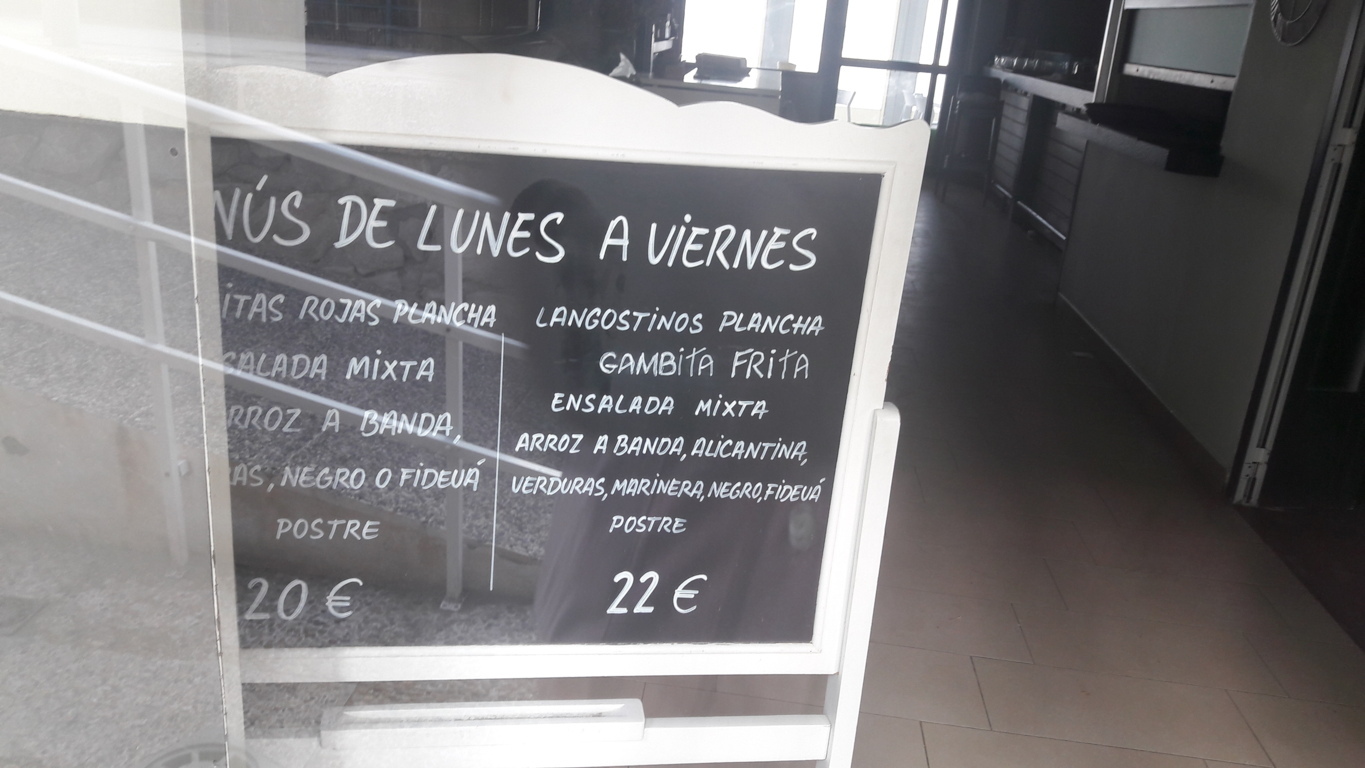 NÚS DE LUNES A VIERNES
ITAS ROJAS PLANCHA
SALADA MIXTA
RROZ A BANDA,
RAS, NEGRO O FIDEUÁ
POSTRE
20 €
LANGOSTINOS PLANCHA
GAMBITA FRITA
ENSALADA MIXTA
ARROZ A BANDA, ALICANTINA,
VERDURAS, MARINERA, NEGRO, FIDEUÁ
POSTRE
22 €